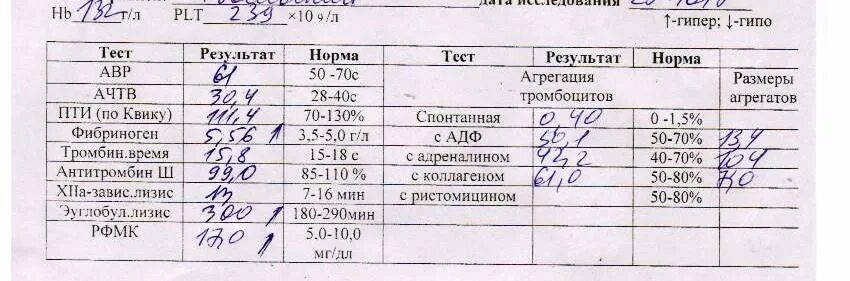 дата исследования
Hb 132 г/л PLT 239 ×10 9/л
↑-гипер; ↓-гипо
Тест Результат Норма Тест Результат Норма
АВР 61 50 -70с Агрегация тромбоцитов Размеры агрегатов
АЧТВ 30,4 28-40с
ПТИ (по Квику) 111,4 70-130% Спонтанная 0,40 0 -1,5%
Фибриноген 5,56 ↑ 3,5-5,0 г/л с АДФ 50-70% 13,4
Тромбин.время 15,8 15-18 с с адреналином 42,2 40-70% 10,4
Антитромбин Ш 99,0 85-110 % с коллагеном 61,0 50-80% 7,0
XIIа-завис.лизис 13 7-16 мин с ристомицином 50-80%
Эуглобул.лизис 300 ↑ 180-290мин
РФМК 17,0 ↑ 5.0-10,0 мг/дл